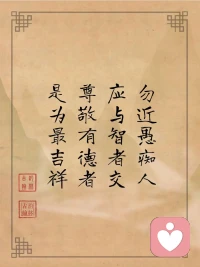 勿近愚痴人
应与智者交
尊敬有德者
是为最吉祥